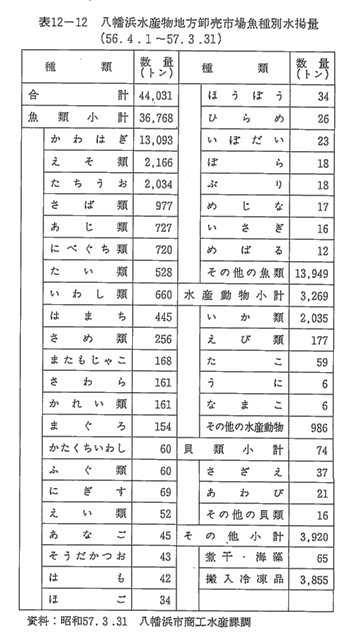 表12-12 八幡浜水産物地方卸売市場魚種別水揚量
(56.4.1~57.3.31)
種類 数量(トン)
合計 44,031
魚類小計 36,768
かわはぎ 13,093
えそ類 2,166
たちうお 2,034
さば類 977
あじ類 727
にべぐち類 720
たい類 528
いわし類 660
はまち 445
さめ類 256
またもじゃこ 168
さわら 161
かれい類 161
まぐろ 154
かたくちいわし 60
ふぐ類 60
にぎす 69
えい類 52
あなご 45
そうだかつお 43
はも 42
ほご 34
種類 数量(トン)
ほうぼう 34
ひらめ 26
いぼだい 23
ぼら 18
ぶり 18
めじな 17
いさき 16
めばる 12
その他の魚類 13,949
水産動物小計 3,269
いか類 2,035
えび類 177
たこ 59
うに 6
なまこ 6
その他の水産動物 986
貝類小計 74
さざえ 37
あわび 21
その他の貝類 16
その他小計 3,920
煮干・海藻 65
搬入冷凍品 3,855
資料:昭和57.3.31 八幡浜市商工水産課調